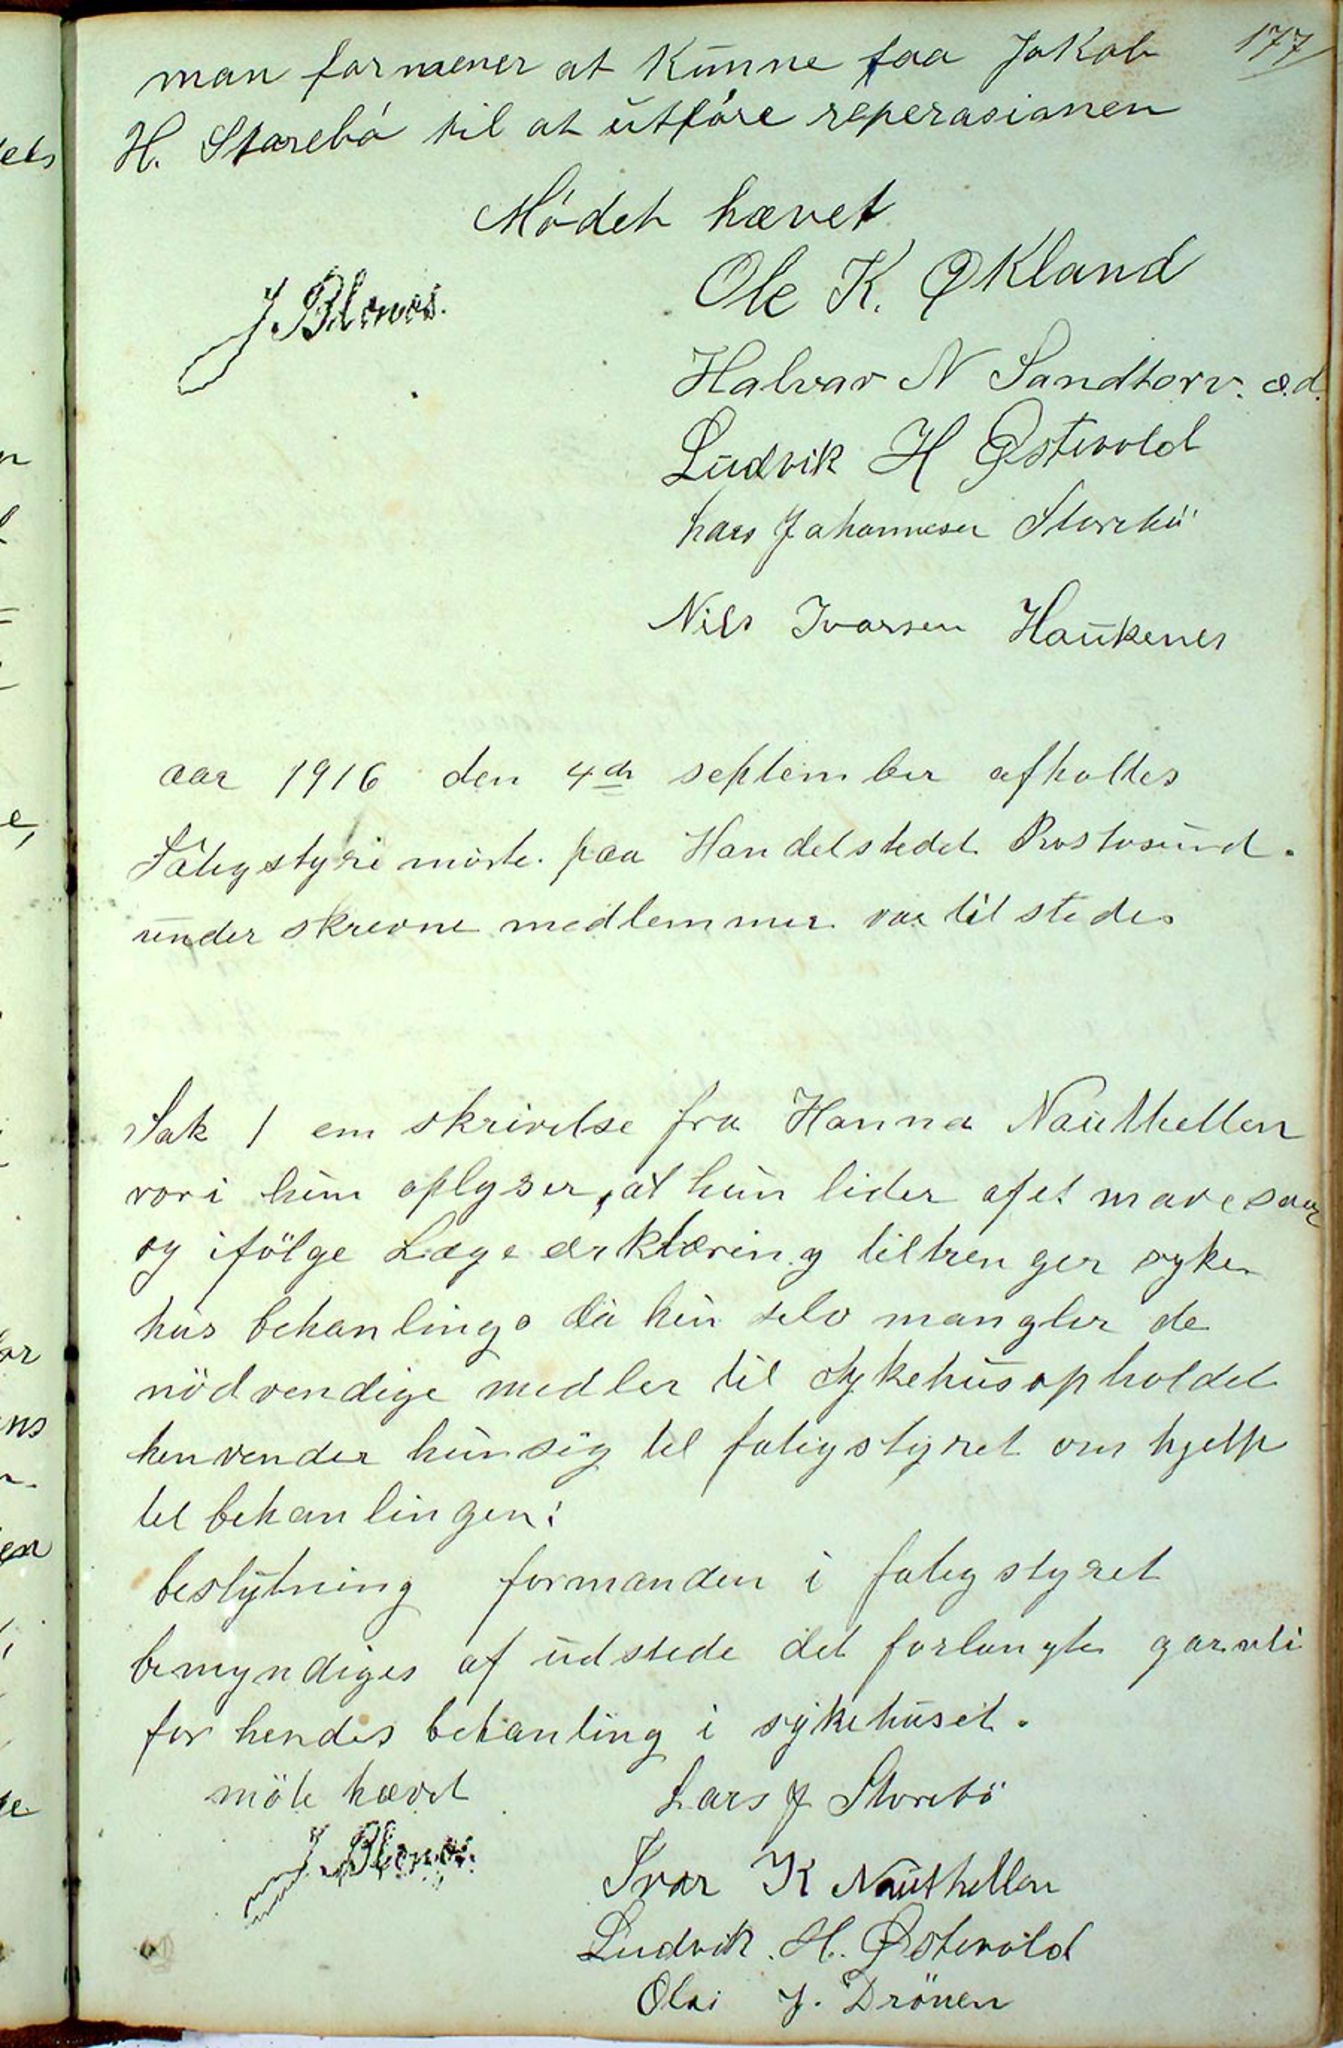 177
man formener at kunne faa Jakob
H. Storebö til at utföre reperasionen
Mödet hævet
Ole K. Økland
J. Blænes.
Halvar N Sandtorv. o.d.
Ludvik H Østevold
Lars Johannesen Storebö
Nils Ivarsen Haukenes
aar 1916 den 4de september afholtes
Fatigstyre möte paa Handelstedet Rostøsund.
under skrevne medlemmer var til stedes
Sak 1 em skrivelse fra Hanna Nauthellen
vori hun oplyser, at hun lider af et mavesaar
og ifölge Læge ærklæring tiltrenger syke
hus behanling. da hun selv mangler de
nödvendige midler til sykehusopholdet
henvender hun sig til fatigstyret om hjelp
til behanlingen:
beslytning formanden i fatigstyret
bemyndiges af udstede det forlangte garanti
for hendes behanling i sykehuset.
möte hævet
Lars J Storebö
J. Blænes.
Ivar K Nauthellen
Ludvik. H. Østevold
Olai J. Drönen